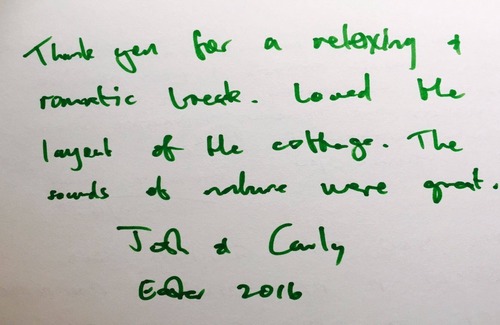 Thank you for a relaxing &
romantic break. Loved the
layout of the cottage. The
sounds of nature were great.
Josh & Carly
Easter 2016